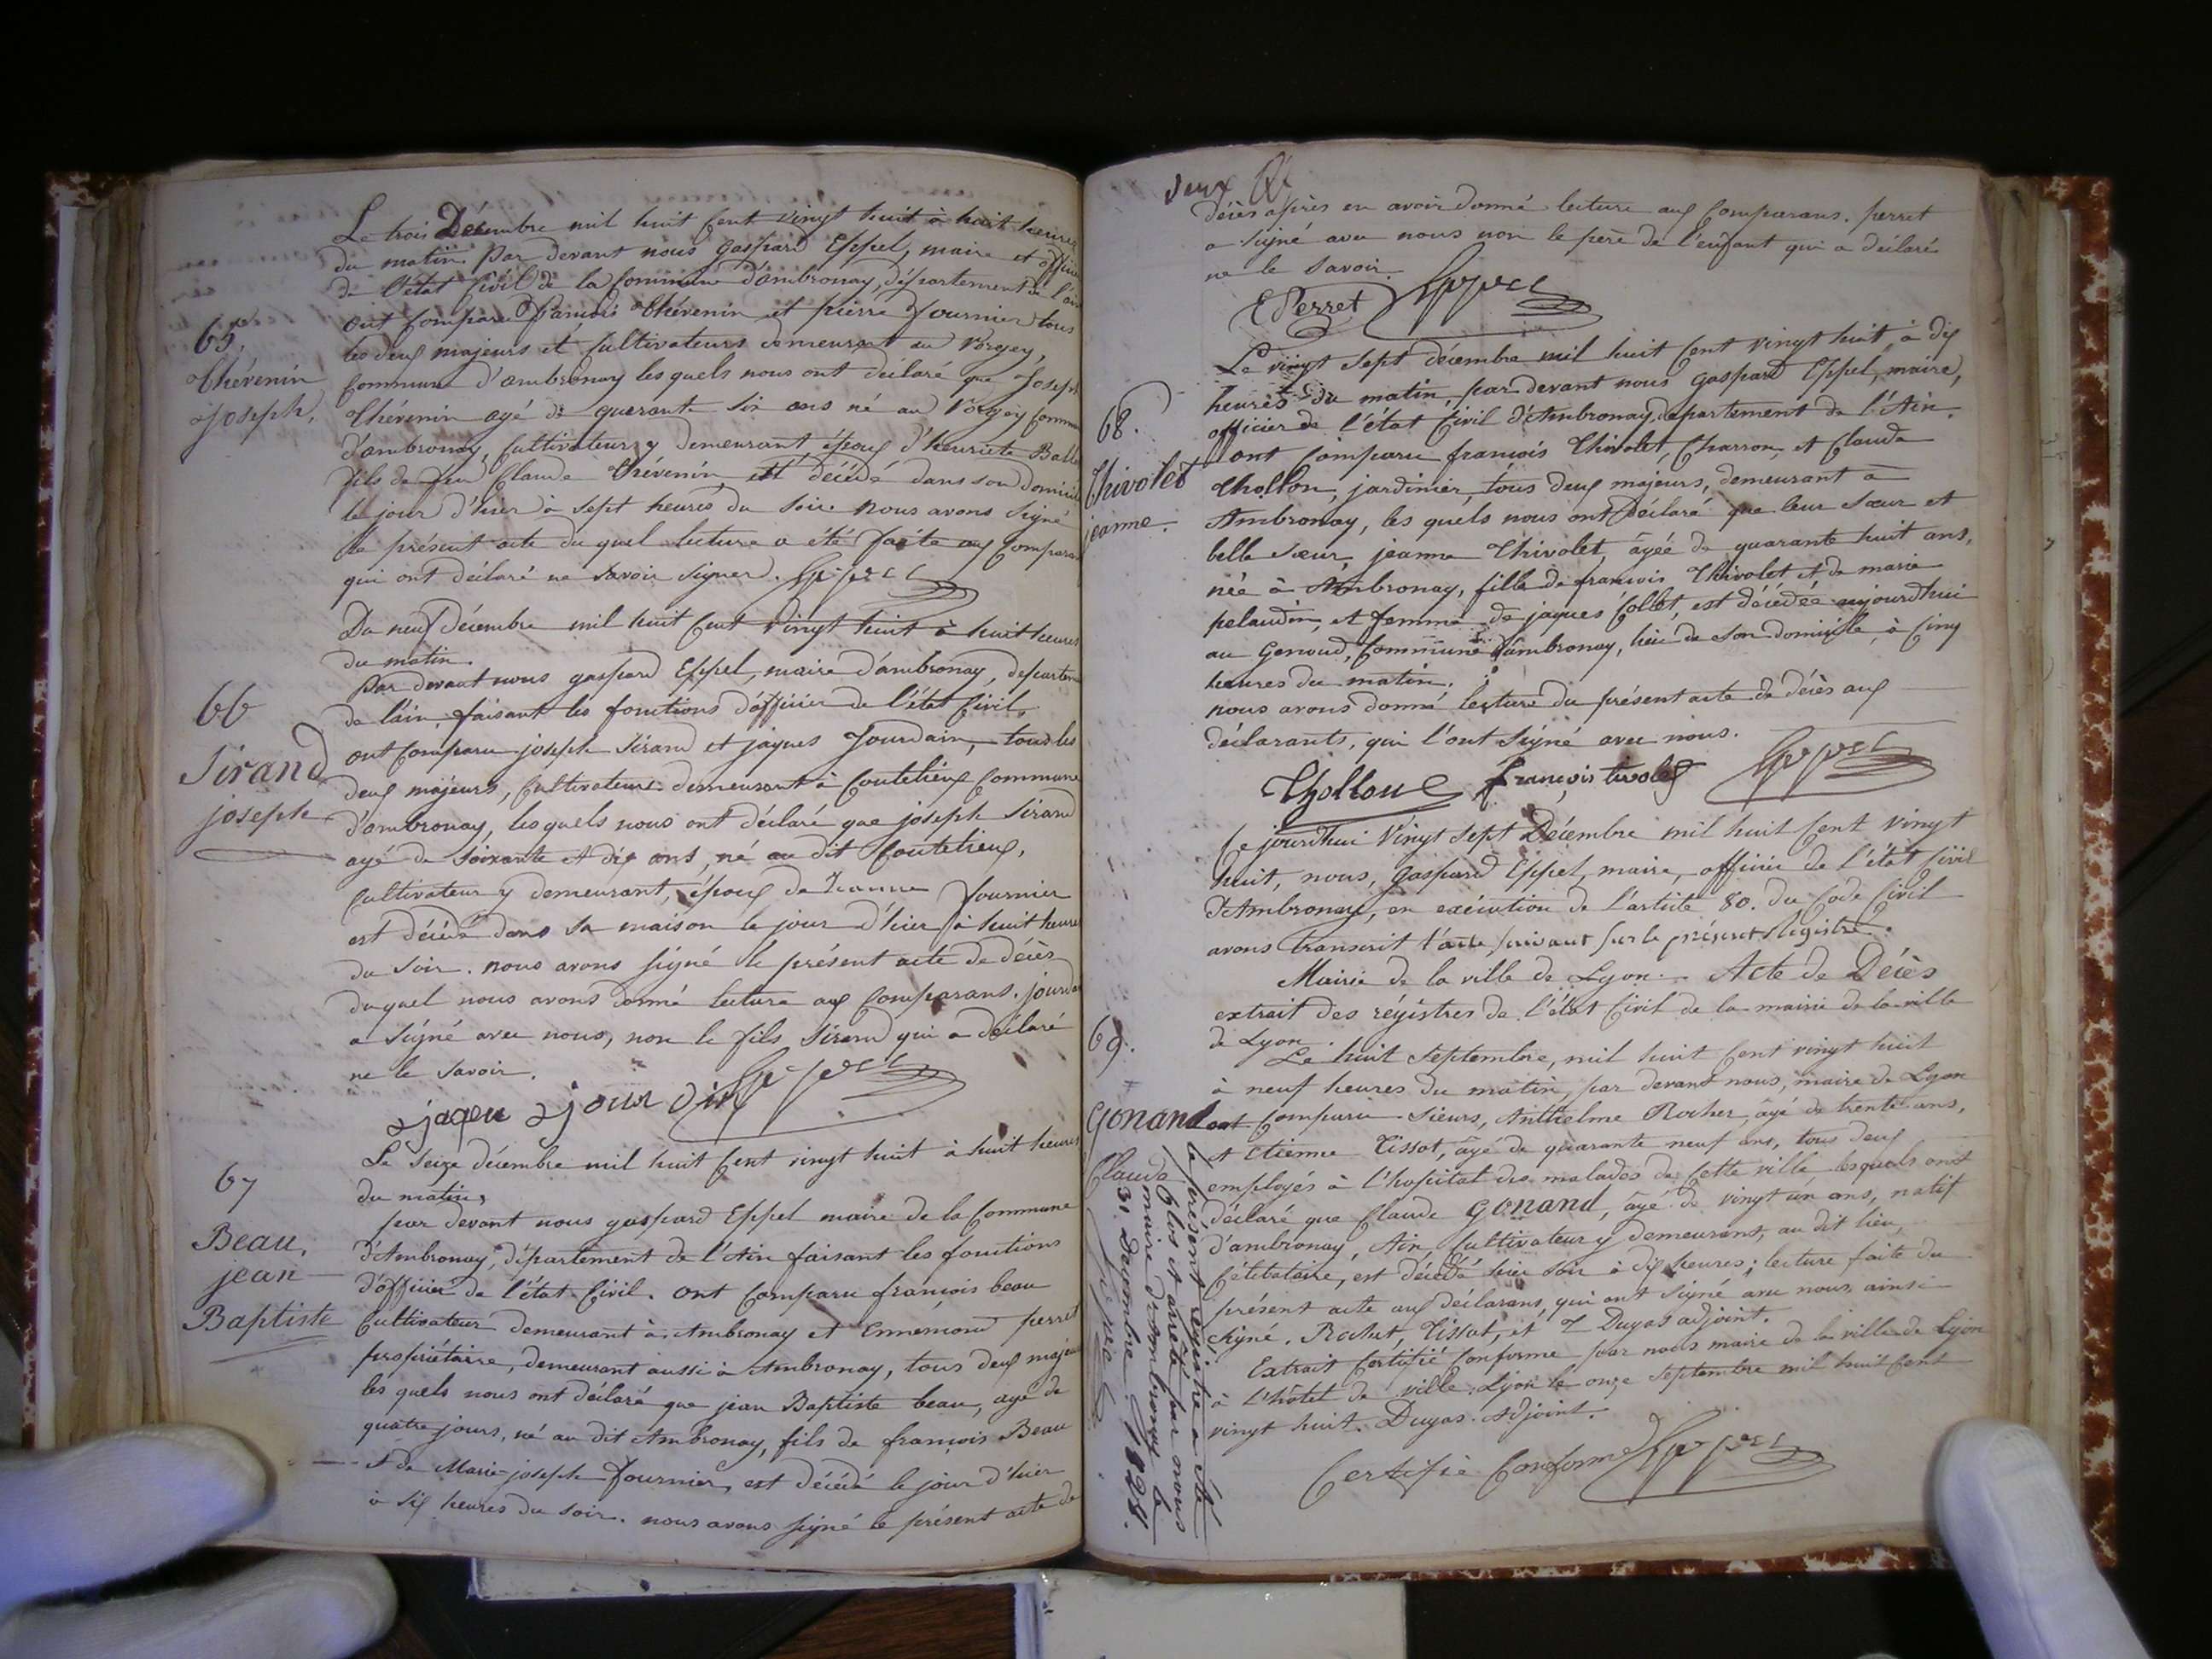 Le trois Décembre mil huit Cent vingt huit à huit heures
du matin. Par devant nous gaspard Eppel, maire et officier
de l'état Civil de la Commune d'ambronay, département de l'ain
ont Comparu François Thévenin et pierre fournier tous
les deux majeurs et Cultivateurs demeurant au Vorgey,
Commune d'ambronay les quels nous ont déclaré que Joseph
65.
Thévenin
Joseph.
Thévenin agé de quarante six ans né au Vorgey Commune
d'ambronay, Cultivateur y demeurant, époux d'henriete
fils de feu Claude Thévenin, est décédé dans son domicile
le jour d'hier à sept heures du soir. nous avons signé
le présent acte du quel lecture a été faite aux Comparans
qui ont déclaré ne savoir signer. Eppel
Du neuf décembre mil huit Cent vingt huit à huit heures
du matin.
Par devant nous gaspard Eppel, maire d'ambronay, departem
de l'ain, faisant les fonctions d'officier de l'état Civil,
ont Comparu joseph Sirand et jaques Jourdain, tous les
deux majeurs, Cultivateurs demeurant à Coutelieux Commune
66
Sirand
joseph
d'ambronay, lesquels nous ont déclaré que joseph Sirand
agé de soixante et dix ans, né au dit Coutelieux,
Cultivateur y demeurant, époux de Jeanne fournier
est décédé dans sa maison le jour d'hier à huit heures
du soir. nous avons signé le présent acte de décès
duquel nous avons donné lecture aux Comparans. jourdain
a signé avec nous, non le fils Sirand qui a déclaré
ne le savoir.
jaque jourdin Eppel
Le seize décembre mil huit Cent vingt huit à huit heures
du matin,
par devant nous gaspard Eppel maire de la Commune
67
Beau,
jean
Baptiste
d'Ambronay, département de l'Ain faisant les fonctions
d'officier de l'état Civil. ont Comparu françois beau
Cultivateur demeurant à Ambronay et Ennemond perret
propriétaire, demeurant aussi à Ambronay, tous deux majeurs
les quels nous ont déclaré que jean Baptiste beau, agé de
quatre jours, né au dit Ambronay, fils de françois Beau
et de Marie-joseph fournier, est décédé le jour d'hier
à six heures du soir. nous avons signé le présent acte de
décès après en avoir donné lecture aux Comparans. perret
a signé avec nous non le père de l'enfant qui a déclaré
ne le savoir.
E Perret Eppel
Le vingt sept décembre mil huit Cent vingt huit à dix
heures du matin, par devant nous Gaspard Eppel, maire,
officier de l'état Civil d'Ambronay, departement de l'Ain.
68.
Thivolet
jeanne.
ont Comparu françois Thivolet, Charron, et Claude
Thollon, jardinier, tous deux majeurs, demeurant à
Ambronay, les quels nous ont déclaré que leur sœur et
belle sœur, jeanne Thivolet, âgée de quarante huit ans,
née à Ambronay, fille de françois Thivolet et de marie
pelaudin, et femme de jaques Collet, est décédée aujourd'hui
au Genoud, Commune d'ambronay, lieu de son domicile, à Cinq
heures du matin.
nous avons donné lecture du présent acte de décès aux
déclarants, qui l'ont signé avec nous.
Thollon françois tivolet Eppel
Ce jourd'hui vingt sept Décembre mil huit Cent vingt
huit, nous, Gaspard Eppel, maire, officier de l'état Civil
d'Ambronay, en exécution de l'article 80. du Code Civil
avons transcrit l'acte suivant sur le présent Régistre.
Mairie de la ville de Lyon. Acte de Décès
extrait des régistres de l'état Civil de la mairie de la ville
de Lyon.
69.
Gonand
Claude
Le huit Septembre, mil huit Cent vingt huit
à neuf heures du matin, par devant nous, maire de Lyon
ont Comparu Sieurs, Anthelme Rocher, âgé de trente ans,
et Etienne Tissot, âgé de quarante neuf ans, tous deux
employés à l'hopital des malades de Cette ville lesquels ont
déclaré que Claude Gonand, âgé de vingt un ans, natif
d'ambronay, Ain, Cultivateur y demeurant, au dit lieu,
Célibataire, est décédé hier soir à dix heures; lecture faite du
présent acte aux déclarans, qui ont signé avec nous, ainsi
signé. Rochet, Tissot, et Dugas adjoint.
Extrait Certifié Conforme par nous maire de la ville de Lyon
à l'hôtel de ville. Lyon le onze septembre mil huit Cent
vingt huit. Dugas. Adjoint.
Certifié Conforme Eppel
le présent régistre a été
Clos et arrêté par nous
maire d'ambronay le
31 Décembre 1828.
Eppel